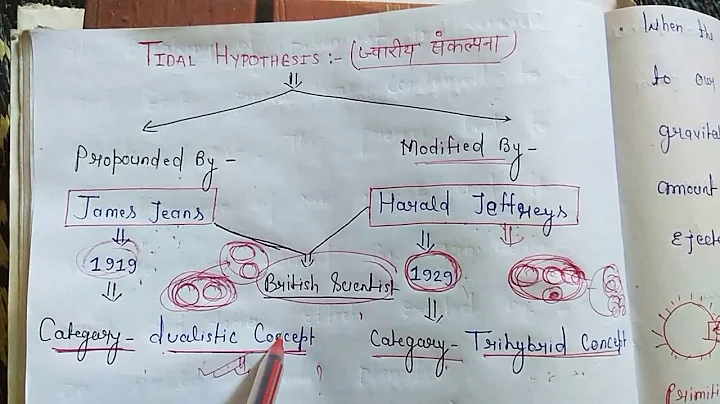 TIDAL HYPOTHESIS :- (ज्वारीय संकल्पना)
Propounded By -
Modified By -
James Jeans
Harald Jeffreys
1919
British Scientist
1929
Categary - dualistic Concept
Categary - Trihybrid Concept
When the
to our
gravita
amount
Ejecte
Primiti